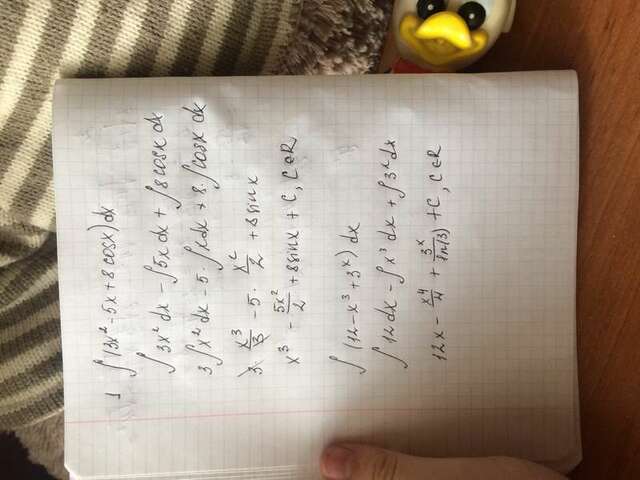 1 ∫(3x² - 5x + 8cosx)dx
∫3x² dx - ∫5x dx + ∫8cosx dx
3∫x² dx - 5·∫x dx + 8·∫cosx dx
3· x³/3 - 5· x²/2 + 8sinx
x³ - 5x²/2 + 8sinx + C, C∈R
∫(12 - x³ + 3ˣ)dx
∫12dx - ∫x³ dx + ∫3ˣdx
12x - x⁴/4 + 3ˣ/ln(3) + C, C∈R